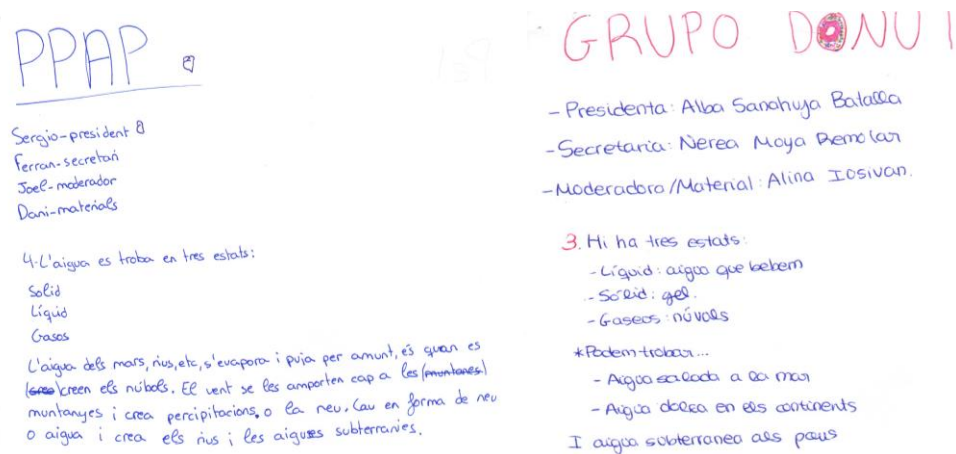 PPAP
Sergio-president
Ferran-secretari
Joel-moderador
Dani-materials
4-L'aigua es troba en tres estats:
Solid
Líquid
Gasos
L'aigua dels mars, rius, etc, s'evapora i puja per amunt, és quan es
creen els núbols. El vent se les amporten cap a les (muntanes)
muntanyes i crea percipitacions, o la neu. Cau en forma de neu
o aigua i crea els rius i les aigues subterranies.
GRUPO DONUT
- Presidenta: Alba Sanahuja Batalla
- Secretaria: Nerea Moya Remolar
- Moderadora/Material: Alina Iosivan.
3. Hi ha tres estats:
- Líquid: aigua que bebem
- Sòlid: gel.
- Gaseos: núvols
*Podem trobar...
- Aigua salada a la mar
- Aigua dolça en els continents
I aigua subterranea als pous